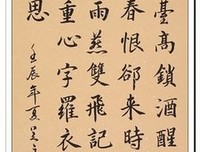 臺高鎖酒醒
春恨卻來時
雨燕雙飛記
重心字羅衣
思
壬辰年夏